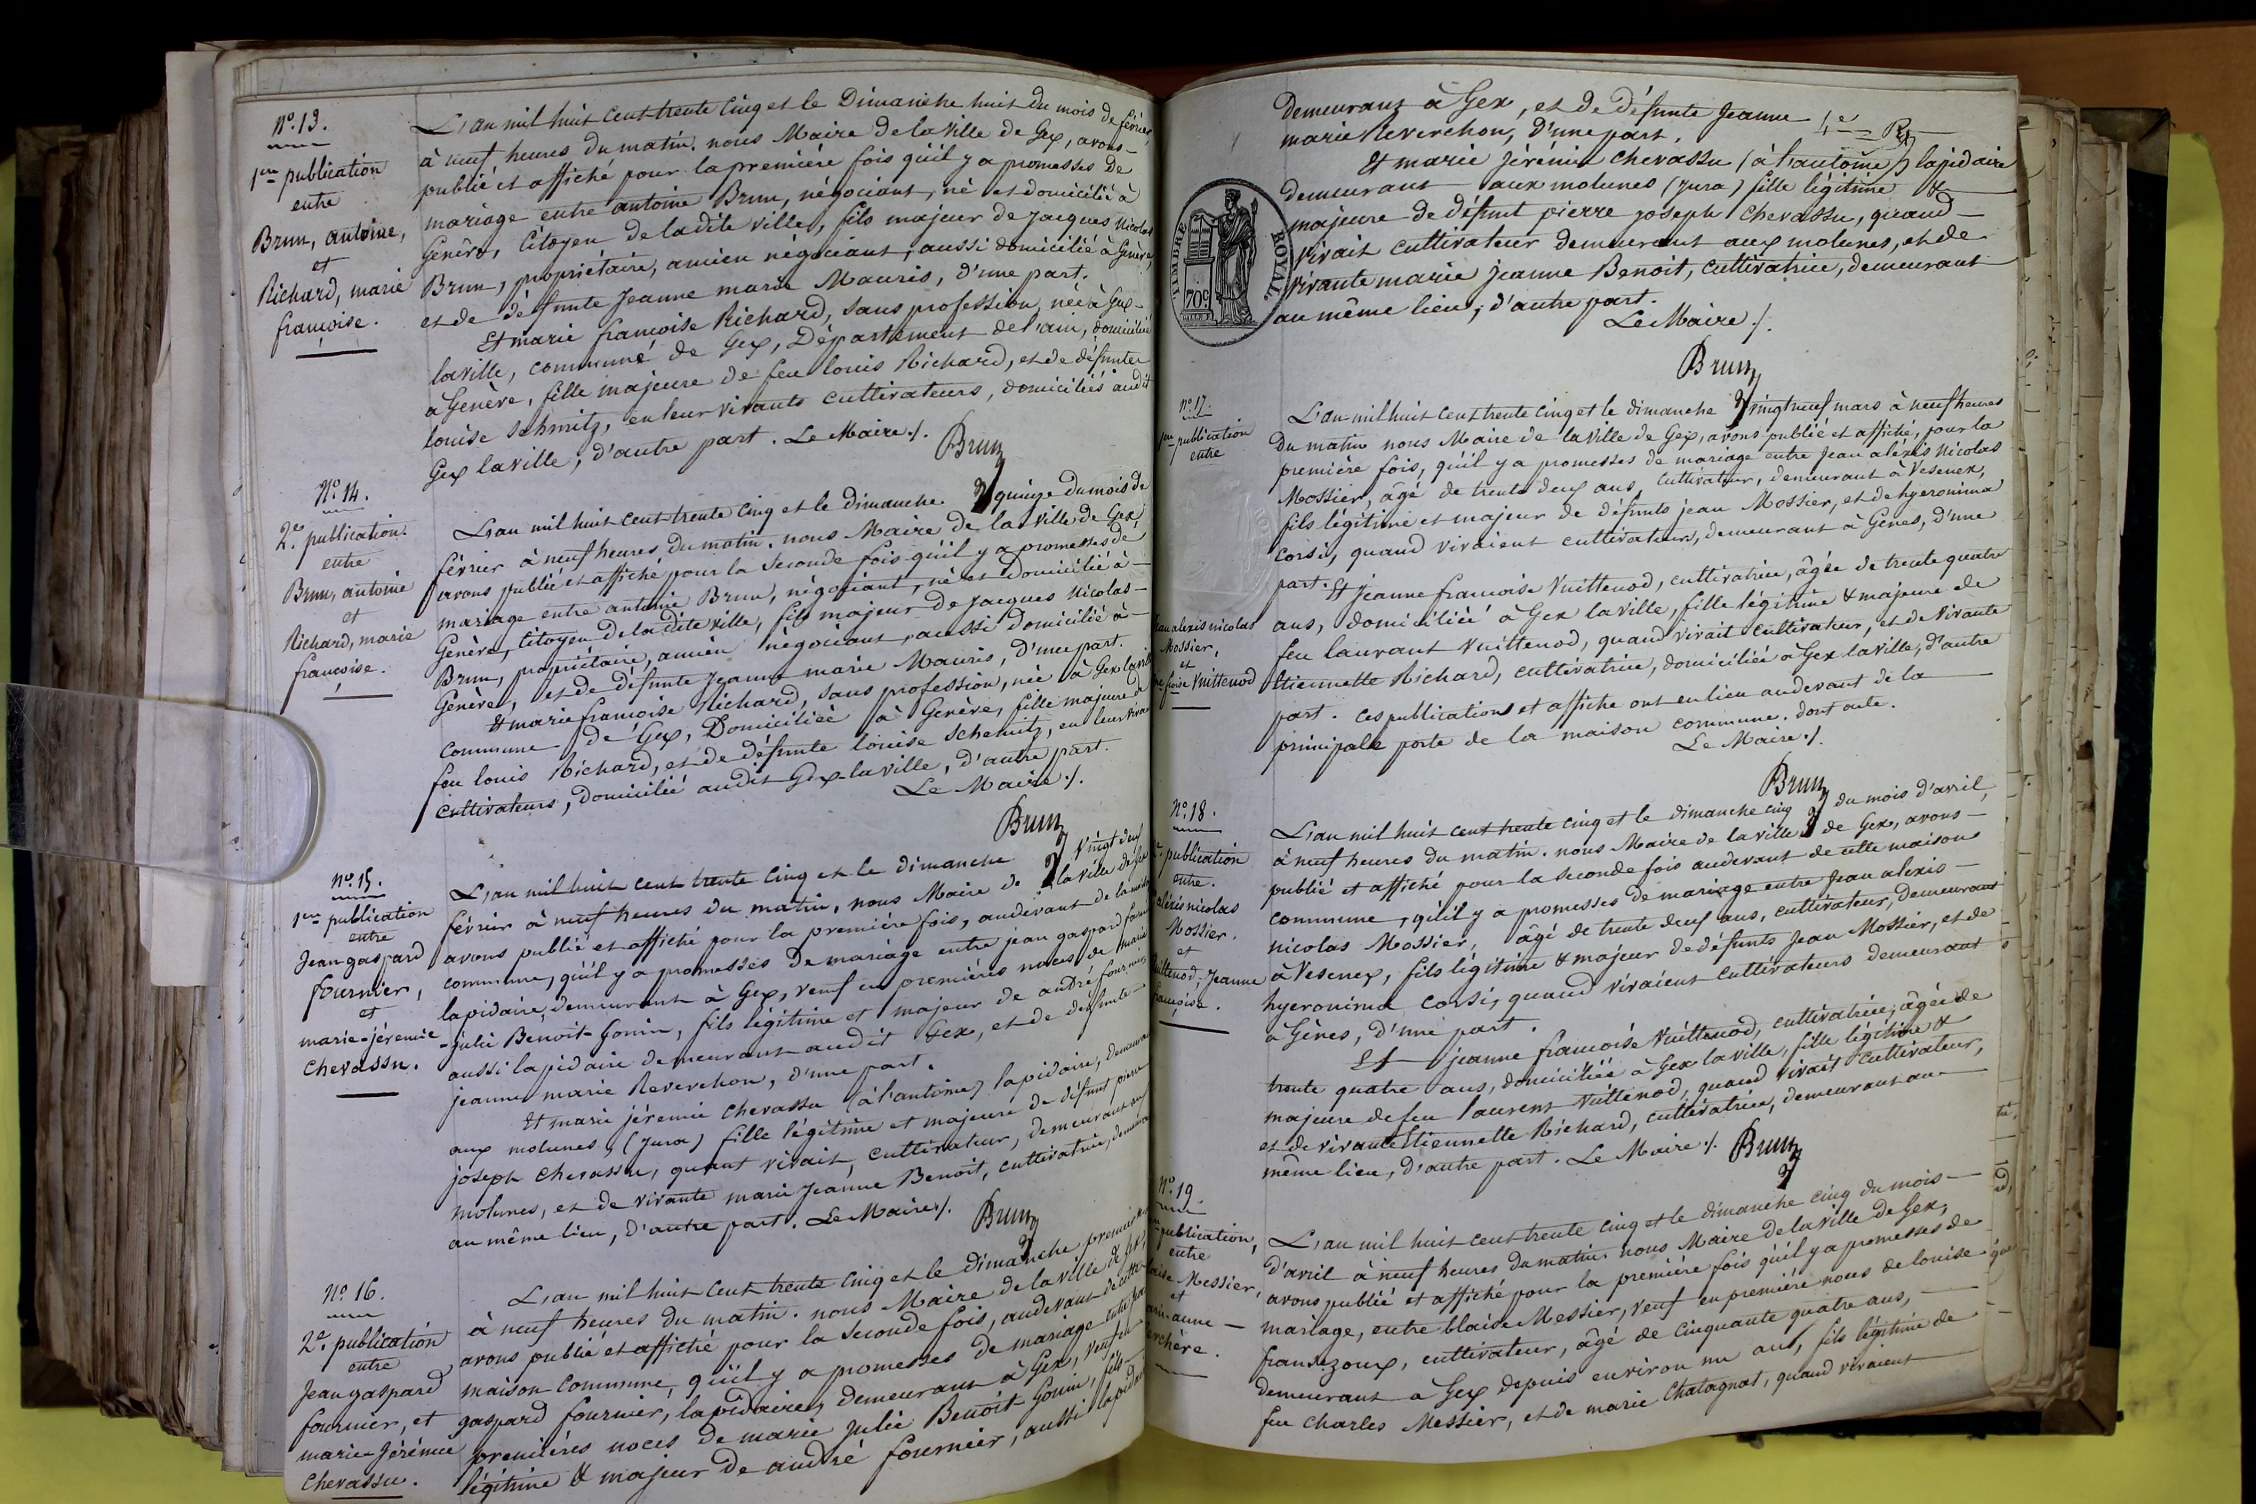 N° 13.
1ere publication
entre
Brun, antoine,
et
Richard, marie
françoise.
L'an mil huit cent trente cinq et le Dimanche huit du mois de février
à neuf heures du matin. nous Maire de la ville de Gex, avons
publié et affiché pour la première fois qu'il y a promesses de
mariage entre antoine Brun, négociant, né et domicilié à
Genève, Citoyen de ladite ville, fils majeur de jacques Nicolas
Brun, propriétaire, ancien négociant, aussi domicilié à Genève,
et de défunte Jeanne marie Mauris, d'une part.
Et marie françoise Richard, sans profession, née à Gex
laville, commune de Gex, Département de l'ain, domiciliée
à Genève, fille majeure de feu louis Richard, et de défunte
louise schmitz, en leur vivants cultivateurs, domiciliés audit
Gex laville, d'autre part. Le Maire ./.
Brun
N° 14.
2e publication.
entre
Brun, antoine
et
Richard, marie
françoise.
L'an mil huit cent trente cinq et le dimanche quinze du mois de
février à neuf heures du matin. nous Maire de la ville de Gex
avons publié et affiché pour la seconde fois qu'il y a promesses de
mariage entre antoine Brun, négociant, né et domicilié à
Genève, citoyen de ladite ville, fils majeur de Jacques Nicolas
Brun, propriétaire, ancien négociant, aussi domicilié à
Genève, et de défunte Jeanne marie Mauris, d'une part.
Et marie françoise Richard, sans profession, née à Gex laville
commune de Gex, Domiciliée à Genève, fille majeure de
feu louis Richard, et de défunte louise schemitz, en leur vivant
cultivateurs, domicilié audit Gex-laville, d'autre part.
Le Maire ./.
Brun
N° 15.
1ere publication
entre
Jean gaspard
fournier,
et
marie-jéremie
Chevassu.
L'an mil huit cent trente cinq et le dimanche vingt deux
février à neuf heures du matin, nous Maire de la ville de Gex
avons publié et affiché pour la première fois, audevant de la maison
commune, qu'il y a promesses de mariage entre jean gaspard fournier
lapidaire, demeurant à Gex, veuf en premières noces de marie
julie Benoit-Gonin, fils légitime et majeur de andré fournier,
aussi lapidaire demeurant audit Gex, et de defunte
jeanne marie Reverchon, d'une part.
Et marie jéremie Chevassu (à l'antoine) lapidaire, demeurant
aux molunes, (jura) fille légitime et majeure de défunt pierre
joseph Chevassu, quant vivait, cultivateur, demeurant aux
molunes, et de vivante marie Jeanne Benoit, cultivatrice, demeurant
au même lieu, d'autre part. Le Maire ./.
Brun
N° 16.
2e publication
entre
Jean gaspard
fournier, et
marie-Jérémie
Chevassu.
L'an mil huit cent trente cinq et le dimanche premier
à neuf heures du matin. nous Maire de la ville de Gex,
avons publié et affiché pour la seconde fois, audevant de cette
maison commune, qu'il y a promesses de mariage entre jean
gaspard fournier, lapidaire, demeurant à Gex, veuf en
premières noces de marie julie Benoit Gonin, fils
légitime & majeur de andré fournier, aussi lapidaire
demeurant à Gex, et de défunte Jeanne
marie Reverchon, d'une part.
Et marie jérémie Chevassu (à l'antoine) lapidaire
demeurant aux molunes (jura) fille légitime &
majeure de défunt pierre joseph Chevassu, quand
vivait cultivateur demeurant aux molunes, et de
vivante marie jeanne Benoit, cultivatrice, demeurant
au même lieu, d'autre part.
Le Maire ./.
Brun
TIMBRE ROYAL
70c
N° 17.
1ere publication
entre
Jean alexis nicolas
Mossier,
et
Vuittenod
L'an mil huit cent trente cinq et le dimanche vingt neuf mars à neuf heures
du matin nous Maire de la ville de Gex, avons publié et affiché, pour la
première fois, qu'il y a promesses de mariage entre Jean alexis Nicolas
Mossier, âgé de trente deux ans, cultivateur, demeurant à Vesenex,
fils légitime et majeur de défunts jean Mossier, et de hyeronima
corsi, quand vivaient cultivateurs, demeurant à Gênes, d'une
part. Et Jeanne francoise Vuittenod, cultivatrice, âgée de trente quatre
ans, domiciliée à Gex laville, fille légitime & majeure de
feu laurant Vuittenod, quand vivait cultivateur, et de vivante
Etiennette Richard, cultivatrice, domiciliée à Gex laville, d'autre
part. Ces publications et affiche ont eu lieu audevant de la
principale porte de la maison commune. dont acte.
Le Maire ./.
Brun
N° 18.
publication
entre.
alexis nicolas
Mossier.
et
Vuittenod, Jeanne
françoise.
L'an mil huit cent trente cinq et le dimanche cinq du mois d'avril,
à neuf heures du matin. nous Maire de la ville de Gex, avons
publié et affiché pour la seconde fois audevant de cette maison
commune, qu'il y a promesses de mariage entre Jean alexis
nicolas Mossier, âgé de trente deux ans, cultivateur, demeurant
à Vesenex, fils légitime & majeur de défunts Jean Mossier, et de
hyeronima Corsi, quand vivaient cultivateurs demeurant
à Gênes, d'une part.
Et jeanne francoise Vuittenod, cultivatrice, âgée de
trente quatre ans, domiciliée à Gex laville, fille légitime &
majeure de feu laurent Vuittenod, quand vivait cultivateur,
et de vivante Etiennette Richard, cultivatrice, demeurant au
même lieu, d'autre part. Le Maire ./. Brun
N° 19.
publication,
entre
Messier,
et
anne
L'an mil huit cent trente cinq et le dimanche cinq du mois
d'avril à neuf heures du matin. nous Maire de la ville de Gex,
avons publié et affiché pour la première fois qu'il y a promesses de
mariage, entre blaise Messier, veuf en première noces de louise
franizoux, cultivateur, âgé de cinquante quatre ans,
demeurant à Gex depuis environ un an, fils légitime de
feu Charles Messier, et de marie Chatagnat, quand vivaient